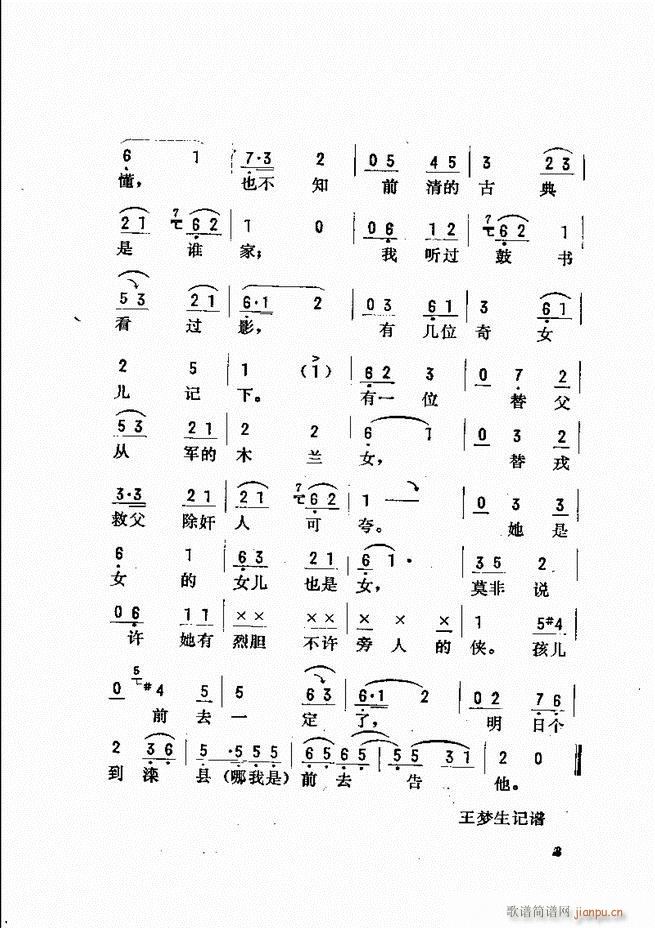 6 1 | 7·3 2 | 0 5 4 5 | 3 2 3
懂， 也不 知 前 清的 古 典
2 1 6 2 | 1 0 | 0 6 1 2 | 6 2 1
是 谁 家； 我 听过 鼓 书
5 3 2 1 | 6·1 2 | 0 3 6 1 | 3 6 1
看 过 影， 有 几位 奇 女
2 5 | 1 (1) | 6 2 3 | 0 7 2
儿 记 下。 有一 位 替 父
5 3 2 1 | 2 2 | 6 1 | 0 3 2
从 军的 木 兰 女， 替 戎
3·3 2 1 | 2 1 6 2 | 1 — | 0 3 3
救父 除奸 人 可 夸。 她 是
6 1 | 6 3 2 1 | 6 1· | 3 5 2
女 的 女儿 也是 女， 莫非 说
0 6 1 1 | × × × × | × × × | 1 5 #4
许 她有 烈胆 不许 旁 人 的 侠。 孩儿
0 5 #4 5 | 5 6 3 | 6·1 2 | 0 2 7 6
前 去 一 定 了， 明 日个
2 3 6 | 5 ·5 5 5 | 6 5 6 5 | 5 5 3 1 | 2 0 ‖
到 滦 县（哪我是）前 去 告 他。
王梦生记谱
歌谱简谱网 jianpu.cn